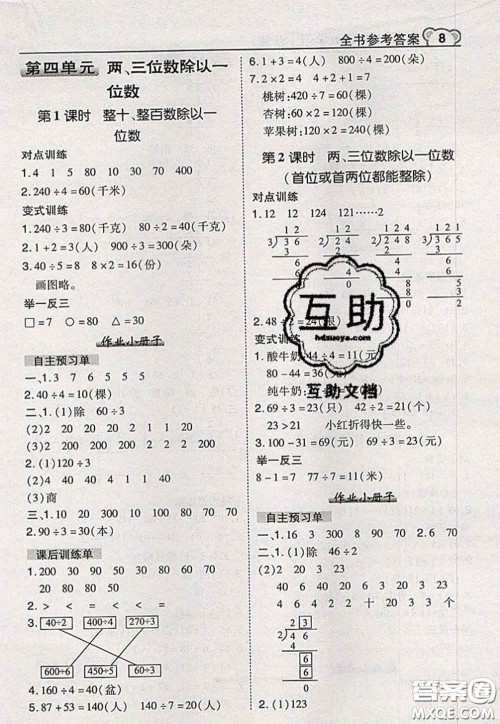 全书参考答案 8
第四单元 两、三位数除以一
位数
第1课时 整十、整百数除以一
位数
对点训练
1.4 1 5 80 10 30 70 400
2.240÷4=60(千米)
变式训练
1.240÷3=80(千克) 80÷2=40(千克)
2.1+2=3(人) 900÷3=300(朵)
3.40÷5=8 8×2=16(份)
画图略。
举一反三
□=7 ○=8 △=30
作业小册子
自主预习单
一、1.3 7 6 5 5 5
2.60÷3=20(元)
二、1.(1)除 60÷3
(2)2 2 20 20 20
2.(1)除 240÷6
(2)4 24 40 40 40 240
三、20 10 400 90 200 80 70
四、90÷3=30(本)
课后训练单
1.200 30 90 50 200 70
20 80 80 50
2.> < = = > <
3. 40÷2 400÷4 270÷3
600÷6 180÷2 100÷5
4.160÷4=40(盆)
5.87+53=140(人) 140÷7=20(人)
6.1+3=4(人) 800÷4=200(元)
7.2×60=120(棵)
桃树:120÷2=60(棵)
杏树:120÷3=40(棵)
苹果树:120÷4=30(棵)
第2课时 两、三位数除以一位数
(首位或首两位都能整除)
对点训练
1.12 12 124 121……2
2.48÷2=24(根)
变式训练
1.酸牛奶:44÷4=11(元)
80-44=36(元)
2.69÷3=23(只) 42÷2=21(只)
23>21 小红折得快一些。
3.100-31=69(元) 69÷3=23(元)
举一反三
8-1=7 77÷7=11(米)
作业小册子
自主预习单
一、1.10 20 30 23 20 23 2.6 70
二、1.(1)除 46÷2
(2)2 20 3 23 23
2.(1)123
互助
hdzuoye.com
互助文档
答案圈
MXQE.COM